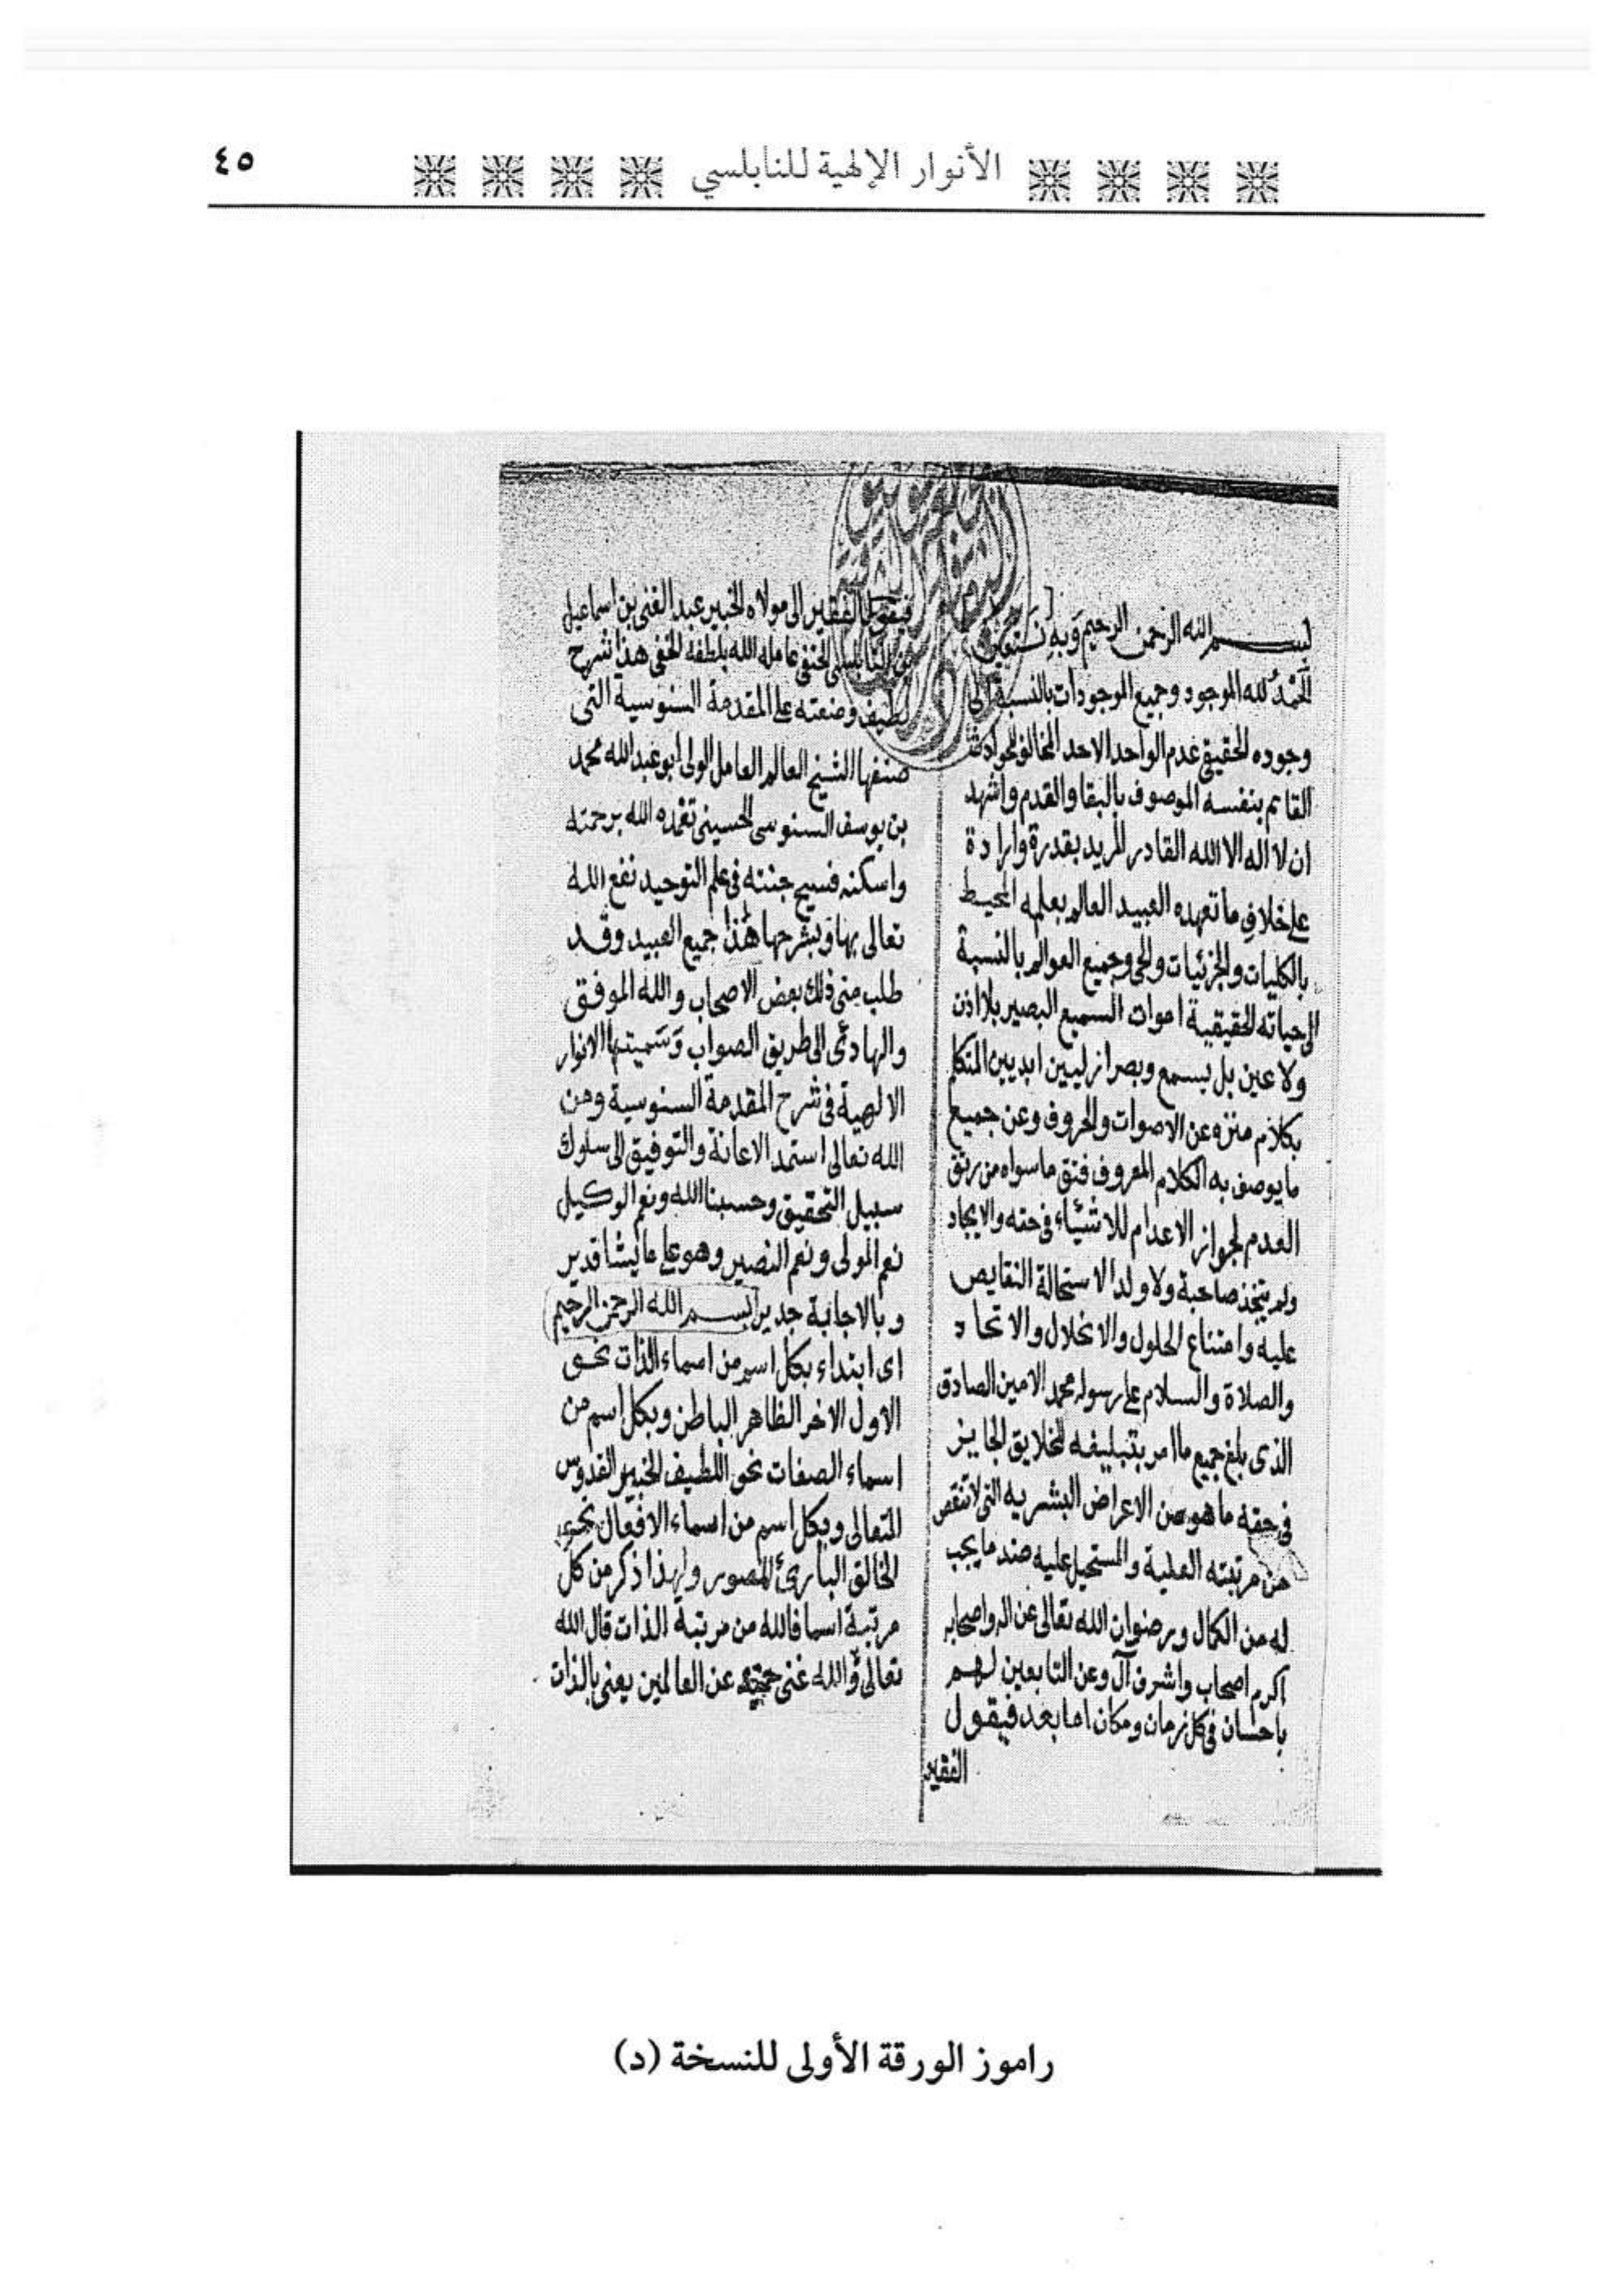 الأنوار الإلهية للنابلسي
٤٥
بسم الله الرحمن الرحيم وبه نستعين
الحمد لله الموجود وجميع الموجودات بالنسبة الى
وجوده الحقيقي عدم الواحد الاحد المخالف للحوادث
القائم بنفسه الموصوف بالبقا والقدم واشهد
ان لا اله الا الله القادر المريد بقدرة وارادة
على خلاف ما تعهده العبيد العالم بعلمه المحيط
بالكليات والجزئيات والحي وجميع العوالم بالنسبة
الى حياته الحقيقية اموات السميع البصير بلا اذن
ولا عين بل بسمع وبصر ازليين ابديين المتكلم
بكلام منزه عن الاصوات والحروف وعن جميع
ما يوصف به الكلام المعروف فتق ما سواه من رتق
العدم لجواز الاعدام للاشياء في حقه والايجاد
ولم يتخذ صاحبة ولا ولدا لاستحالة النقايص
عليه وامتناع الحلول والانحلال والاتحاد
والصلاة والسلام على رسوله محمد الامين الصادق
الذي بلغ جميع ما امر بتبليغه للخلايق الجايز
في حقه ما هو من الاعراض البشريه التي لا تنقص
من مرتبته العلية والمستحيل عليه ضد ما يجب
له من الكمال ورضوان الله تعالى عن اله واصحابه
اكرم اصحاب واشرف آل وعن التابعين لهم
باحسان في كل زمان ومكان اما بعد فيقول
الفقير
فيقول الفقير الى مولاه الخبير عبد الغني بن اسماعيل
بن النابلسي الحنفي عامله الله بلطفه الخفي هذا شرح
لطيف وضعته على المقدمة السنوسية التي
صنفها الشيخ العالم العامل الولي ابو عبد الله محمد
بن يوسف السنوسي الحسيني تغمده الله برحمته
واسكنه فسيح جنته في علم التوحيد نفع الله
تعالى بها وبشرحها هذا جميع العبيد وقد
طلب مني ذلك بعض الاصحاب والله الموفق
والهادي الى طريق الصواب وسميتها الانوار
الالهية في شرح المقدمة السنوسية ومن
الله تعالى استمد الاعانة والتوفيق الى سلوك
سبيل التحقيق وحسبنا الله ونعم الوكيل
نعم المولى ونعم النصير وهو على ما يشا قدير
وبالاجابة جدير بسم الله الرحمن الرحيم
اى ابتداء بكل اسم من اسماء الذات نحو
الاول الاخر الظاهر الباطن وبكل اسم من
اسماء الصفات نحو اللطيف الخبير القدوس
المتعالى وبكل اسم من اسماء الافعال نحو
الخالق البارئ المصور ولهذا ذكر من كل
مرتبة اسما فالله من مرتبة الذات قال الله
تعالى والله غني عن العالمين يعنى بالذات
راموز الورقة الأولى للنسخة (د)